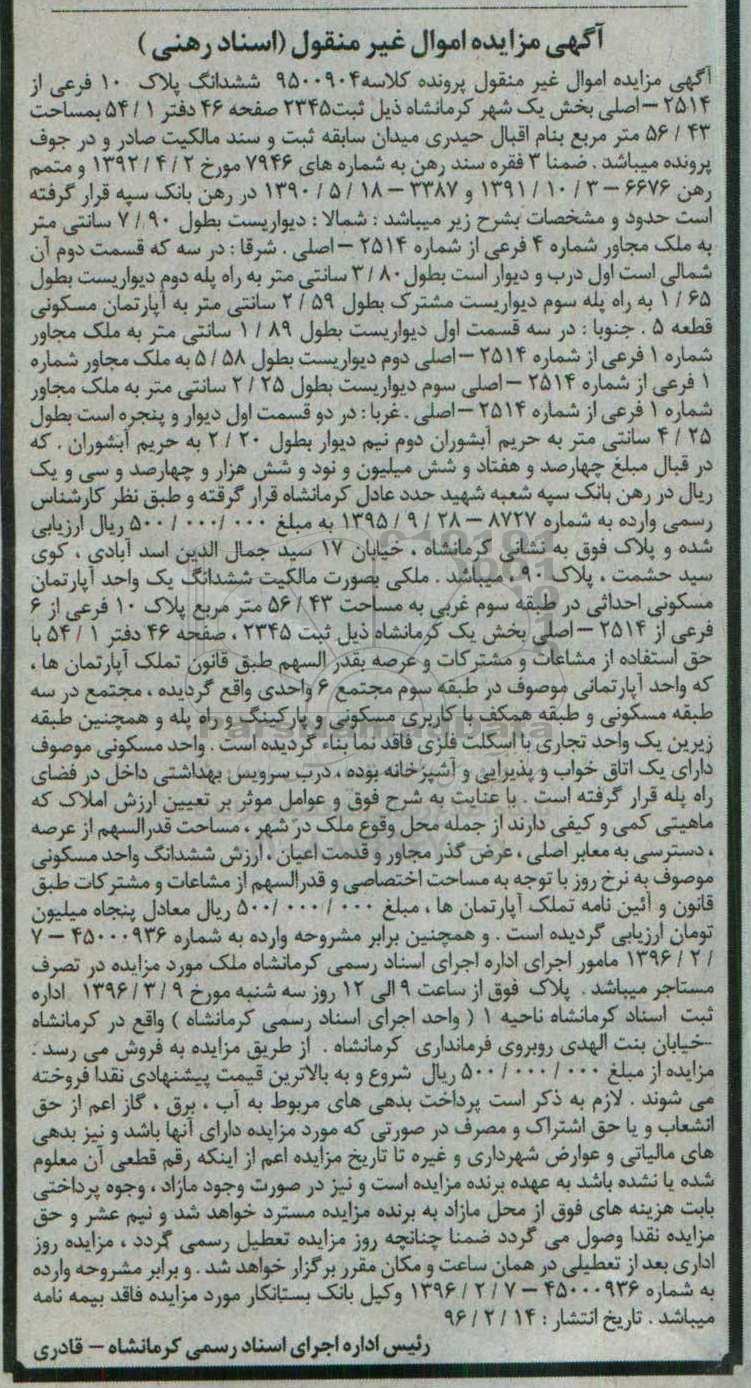 آگهی مزایده اموال غیر منقول (اسناد رهنی)
آگهی مزایده اموال غیر منقول پرونده کلاسه ۹۵۰۰۹۰۴ ششدانگ پلاک ۱۰ فرعی از
۲۵۱۴ – اصلی بخش یک شهر کرمانشاه ذیل ثبت ۲۳۴۵ صفحه ۴۶ دفتر ۱ / ۵۴ بمساحت
۴۳ / ۵۶ متر مربع بنام اقبال حیدری میدان سابقه ثبت و سند مالکیت صادر و در جوف
پرونده میباشد . ضمنا ۳ فقره سند رهن به شماره های ۷۹۴۶ مورخ ۲ / ۴ / ۱۳۹۲ و متمم
رهن ۶۶۷۶ – ۳ / ۱۰ / ۱۳۹۱ و ۳۳۸۷ – ۱۸ / ۵ / ۱۳۹۰ در رهن بانک سپه قرار گرفته
است حدود و مشخصات بشرح زیر میباشد : شمالا : دیواریست بطول ۹۰ / ۷ سانتی متر
به ملک مجاور شماره ۴ فرعی از شماره ۲۵۱۴ – اصلی . شرقا : در سه که قسمت دوم آن
شمالی است اول درب و دیوار است بطول ۸۰ / ۳ سانتی متر به راه پله دوم دیواریست بطول
۶۵ / ۱ به راه پله سوم دیواریست مشترک بطول ۵۹ / ۲ سانتی متر به آپارتمان مسکونی
قطعه ۵ . جنوبا : در سه قسمت اول دیواریست بطول ۸۹ / ۱ سانتی متر به ملک مجاور
شماره ۱ فرعی از شماره ۲۵۱۴ – اصلی دوم دیواریست بطول ۵۸ / ۵ به ملک مجاور شماره
۱ فرعی از شماره ۲۵۱۴ – اصلی سوم دیواریست بطول ۲۵ / ۲ سانتی متر به ملک مجاور
شماره ۱ فرعی از شماره ۲۵۱۴ – اصلی . غربا : در دو قسمت اول دیوار و پنجره است بطول
۲۵ / ۴ سانتی متر به حریم آبشوران دوم نیم دیوار بطول ۲۰ / ۲ به حریم آبشوران . که
در قبال مبلغ چهارصد و هفتاد و شش میلیون و نود و شش هزار و چهارصد و سی و یک
ریال در رهن بانک سپه شعبه شهید حدد عادل کرمانشاه قرار گرفته و طبق نظر کارشناس
رسمی وارده به شماره ۸۷۲۷ – ۲۸ / ۹ / ۱۳۹۵ به مبلغ ۰۰۰ / ۰۰۰ / ۵۰۰ ریال ارزیابی
شده و پلاک فوق به نشانی کرمانشاه ، خیابان ۱۷ سید جمال الدین اسد آبادی ، کوی
سید حشمت ، پلاک ۹۰ میباشد . ملکی بصورت مالکیت ششدانگ یک واحد آپارتمان
مسکونی احداثی در طبقه سوم غربی به مساحت ۴۳ / ۵۶ متر مربع پلاک ۱۰ فرعی از ۶
فرعی از ۲۵۱۴ – اصلی بخش یک کرمانشاه ذیل ثبت ۲۳۴۵ ، صفحه ۴۶ دفتر ۱ / ۵۴ با
حق استفاده از مشاعات و مشترکات و عرصه بقدر السهم طبق قانون تملک آپارتمان ها ،
که واحد آپارتمانی موصوف در طبقه سوم مجتمع ۶ واحدی واقع گردیده ، مجتمع در سه
طبقه مسکونی و طبقه همکف با کاربری مسکونی و پارکینگ و راه پله و همچنین طبقه
زیرین یک واحد تجاری با اسکلت فلزی فاقد نما بناء گردیده است . واحد مسکونی موصوف
دارای یک اتاق خواب و پذیرایی و آشپزخانه بوده ، درب سرویس بهداشتی داخل در فضای
راه پله قرار گرفته است . با عنایت به شرح فوق و عوامل موثر بر تعیین ارزش املاک که
ماهیتی کمی و کیفی دارند از جمله محل وقوع ملک در شهر ، مساحت قدرالسهم از عرصه
، دسترسی به معابر اصلی ، عرض گذر مجاور و قدمت اعیان ، ارزش ششدانگ واحد مسکونی
موصوف به نرخ روز با توجه به مساحت اختصاصی و قدرالسهم از مشاعات و مشترکات طبق
قانون و آئین نامه تملک آپارتمان ها ، مبلغ ۰۰۰ / ۰۰۰ / ۵۰۰ ریال معادل پنجاه میلیون
تومان ارزیابی گردیده است . و همچنین برابر مشروحه وارده به شماره ۴۵۰۰۰۹۳۶ – ۷
/ ۲ / ۱۳۹۶ مامور اجرای اداره اجرای اسناد رسمی کرمانشاه ملک مورد مزایده در تصرف
مستاجر میباشد . پلاک فوق از ساعت ۹ الی ۱۲ روز سه شنبه مورخ ۹ / ۳ / ۱۳۹۶ اداره
ثبت اسناد کرمانشاه ناحیه ۱ ( واحد اجرای اسناد رسمی کرمانشاه ) واقع در کرمانشاه
-خیابان بنت الهدی روبروی فرمانداری کرمانشاه . از طریق مزایده به فروش می رسد .
مزایده از مبلغ ۰۰۰ / ۰۰۰ / ۵۰۰ ریال شروع و به بالاترین قیمت پیشنهادی نقدا فروخته
می شوند . لازم به ذکر است پرداخت بدهی های مربوط به آب ، برق ، گاز اعم از حق
انشعاب و یا حق اشتراک و مصرف در صورتی که مورد مزایده دارای آنها باشد و نیز بدهی
های مالیاتی و عوارض شهرداری و غیره تا تاریخ مزایده اعم از اینکه رقم قطعی آن معلوم
شده یا نشده باشد به عهده برنده مزایده است و نیز در صورت وجود مازاد ، وجوه پرداختی
بابت هزینه های فوق از محل مازاد به برنده مزایده مسترد خواهد شد و نیم عشر و حق
مزایده نقدا وصول می گردد ضمنا چنانچه روز مزایده تعطیل رسمی گردد ، مزایده روز
اداری بعد از تعطیلی در همان ساعت و مکان مقرر برگزار خواهد شد . و برابر مشروحه وارده
به شماره ۴۵۰۰۰۹۳۶ – ۷ / ۲ / ۱۳۹۶ وکیل بانک بستانکار مورد مزایده فاقد بیمه نامه
میباشد . تاریخ انتشار : ۱۴ / ۲ / ۹۶
رئیس اداره اجرای اسناد رسمی کرمانشاه – قادری